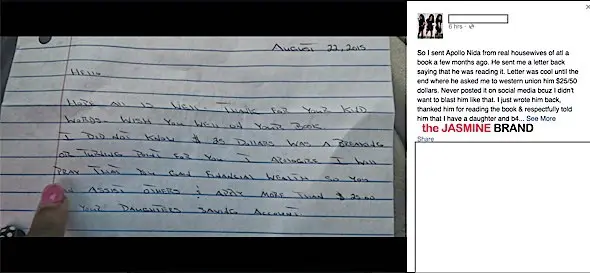 August 22, 2015
Hello
Hope all is well. Thank for your kid
words. Wish you well on your book.
I did not know $ 25 dollars was a breaking
or turning point for you I apologies I will
pray that you gain financial wealth so you
assist others & apply more than $ 25.00
your daughters saving account
6 hrs ·
So I sent Apollo Nida from real housewives of atl a
book a few months ago. He sent me a letter back
saying that he was reading it. Letter was cool until the
end where he asked me to western union him $25/50
dollars. Never posted it on social media bcuz I didn't
want to blast him like that. I just wrote him back,
thanked him for reading the book & respectfully told
him that I have a daughter and b4... See More
the JASMINE BRAND
Share